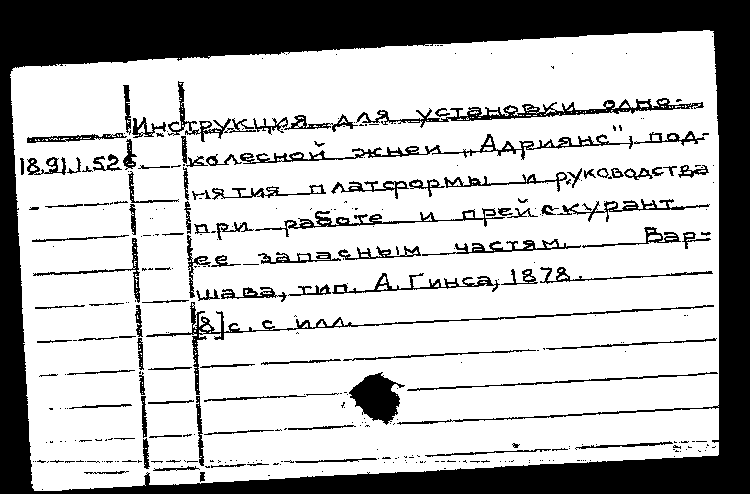 Инструкция для установки одно-
18.91.1.526. колесной жнеи „Адриянс", под-
нятия платформы и руководства
при работе и прейскурант
ее запасным частям. Вар-
шава, тип. А. Гинса, 1878.
[8] с. с илл.